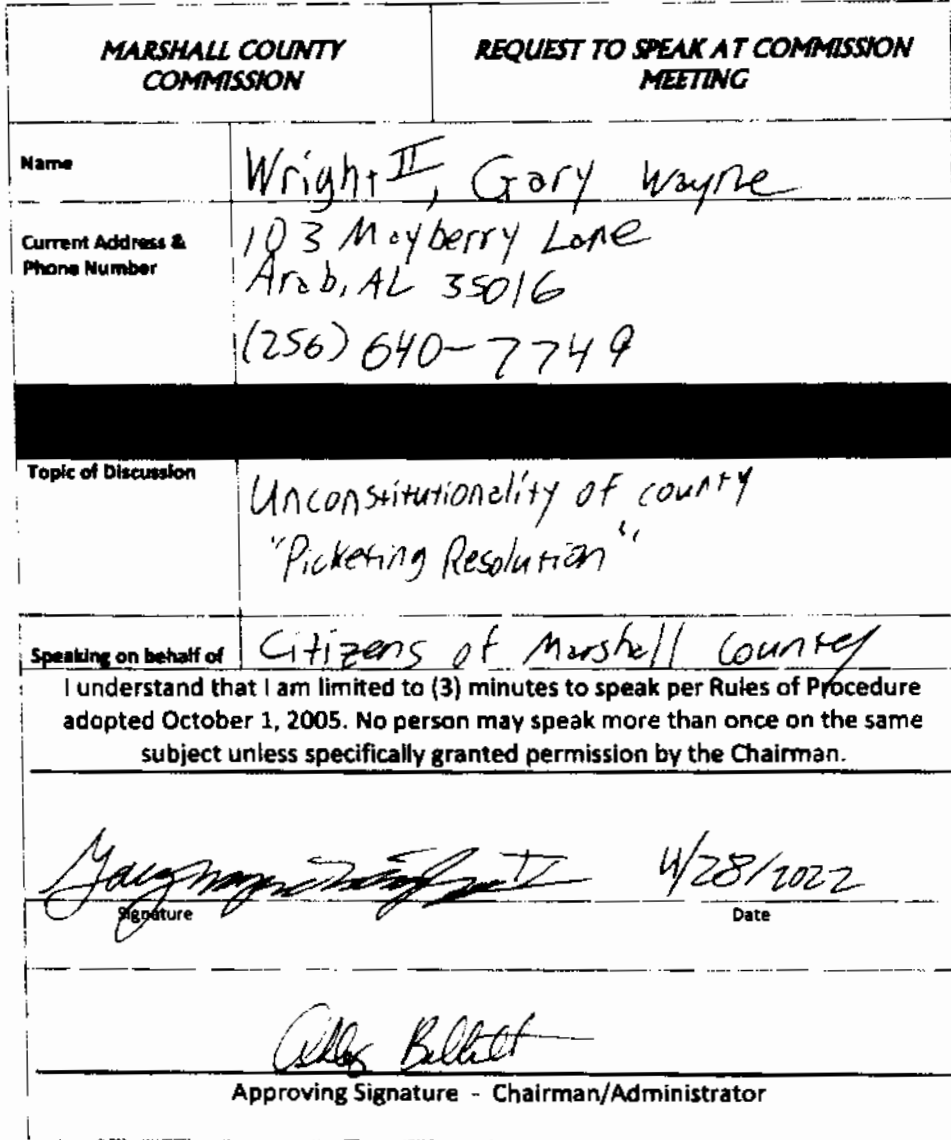 MARSHALL COUNTY
COMMISSION
REQUEST TO SPEAK AT COMMISSION
MEETING
Name
Wright II, Gary Wayne
Current Address &
Phone Number
103 Mayberry Lane
Arab, AL 35016
(256) 640-7749
Topic of Discussion
Unconstitutionality of county
"Picketing Resolution"
Speaking on behalf of
Citizens of Marshall County
I understand that I am limited to (3) minutes to speak per Rules of Procedure
adopted October 1, 2005. No person may speak more than once on the same
subject unless specifically granted permission by the Chairman.
4/28/2022
Signature
Date
Approving Signature - Chairman/Administrator